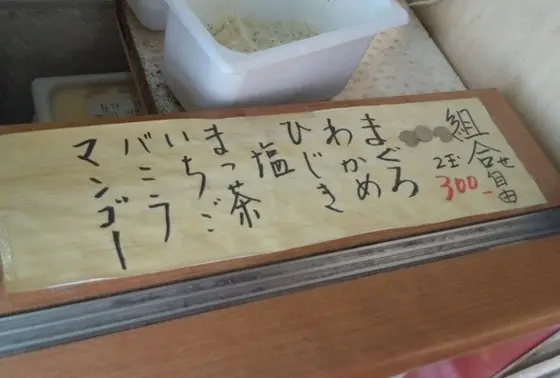 組合せ自由
2玉
300-
まぐろ
わかめ
ひじき
塩
まっ茶
いちご
バニラ
マンゴー